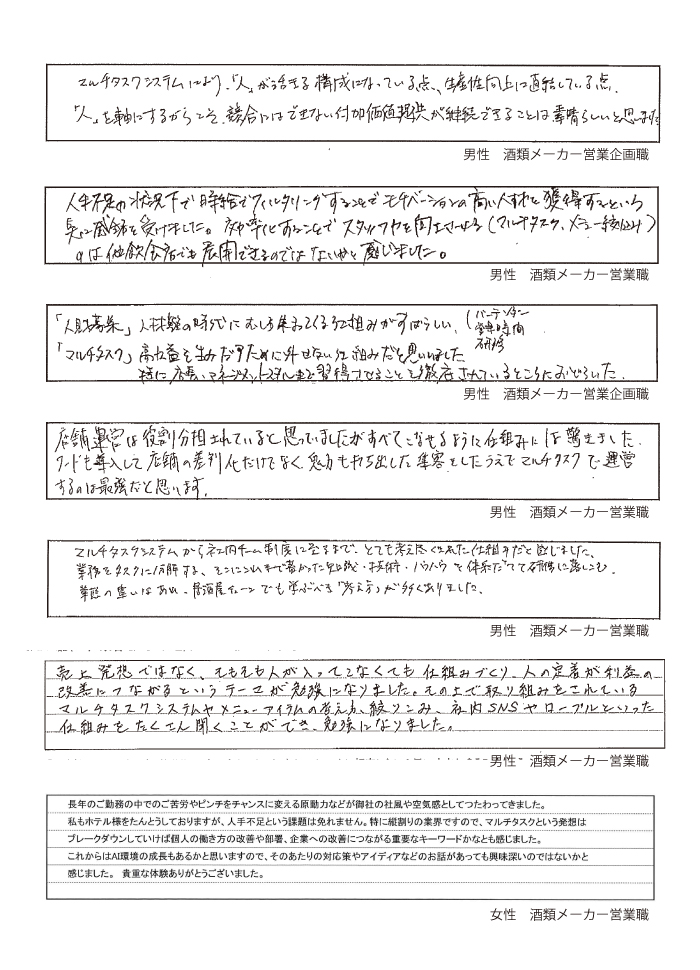 マルチタスクシステムにより、「人」が活きる構成になっている点、生産性向上に直結している点、
「人」を軸にするからこそ、競合にはできない付加価値提供が継続できることは素晴らしいと思いました
男性 酒類メーカー営業企画職
人手不足の状況下で時給でフィルタリングすることでモチベーションの高い人材を獲得するという
点に感銘を受けました。効率化することでスタッフを向上させる(マルチタスク、メニュー絞込み)
のは他飲食店でも展開できるのではないかと感じました。
男性 酒類メーカー営業職
「人財募集」人材難の時代にむしろ集まってくる仕組みがすばらしい、(バーテンダー
営業時間
研修
「マルチタスク」高収益を生みだすために外せない仕組みだと思いました
特に店長、マネージメントスキルまで習得させることを徹底されているところにおどろいた。
男性 酒類メーカー営業企画職
店舗運営は役割分担されていると思っていましたがすべてこなせるように仕組みには驚きました。
フードも導入して店舗の差別化だけでなく魅力も打ち出した集客をしたうえでマルチタスクで運営
するのは最強だと思います。
男性 酒類メーカー営業職
マルチタスクシステムから社内チーム制度に至るまで、とても考え尽くされた仕組みだと感じました、
業務をタスクに分解する、そこにこれまで養かった知識・技術・ノウハウを体系だてて研修に落としこむ
業態の違いはあれ、居酒屋チェーンでも学ぶべき「考え方」が多くありました。
男性 酒類メーカー営業職
売上発想ではなく、そもそも人が入ってこなくても仕組みづくり、人の定着が利益の
改善につながるというテーマが勉強になりました。その上で取り組みをされている
マルチタスクシステムやメニューアイテムの考え方、絞りこみ、社内SNSやロープルといった
仕組みをたくさん聞くことができ、勉強になりました。
男性 酒類メーカー営業職
長年のご勤務の中でのご苦労やピンチをチャンスに変える原動力などが御社の社風や空気感としてつたわってきました。
私もホテル様をたんとうしておりますが、人手不足という課題は免れません。特に縦割りの業界ですので、マルチタスクという発想は
ブレークダウンしていけば個人の働き方の改善や部署、企業への改善につながる重要なキーワードかなとも感じました。
これからはAI環境の成長もあるかと思いますので、そのあたりの対応策やアイディアなどのお話があっても興味深いのではないかと
感じました。 貴重な体験ありがとうございました。
女性 酒類メーカー営業職